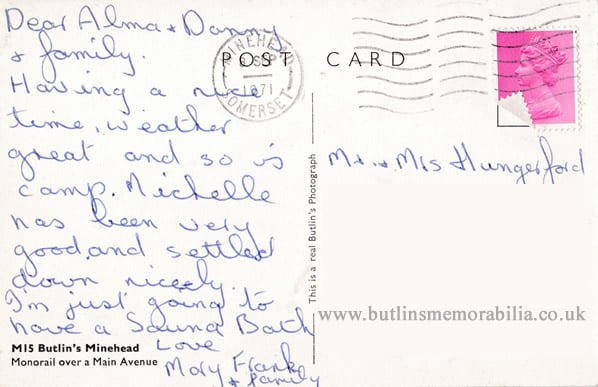 Dear Alma + Danny
+ family.
Having a nice
time, weather
great and so is
camp. Michelle
has been very
good and settled
down nicely.
I'm just going to
have a Sauna Bath
Love
Mary Frank
+ family
M15 Butlin's Minehead
Monorail over a Main Avenue
POST CARD
MINEHEAD
1971
SOMERSET
This is a real Butlin's Photograph
Mr. + Mrs Hungerford
www.butlinsmemorabilia.co.uk